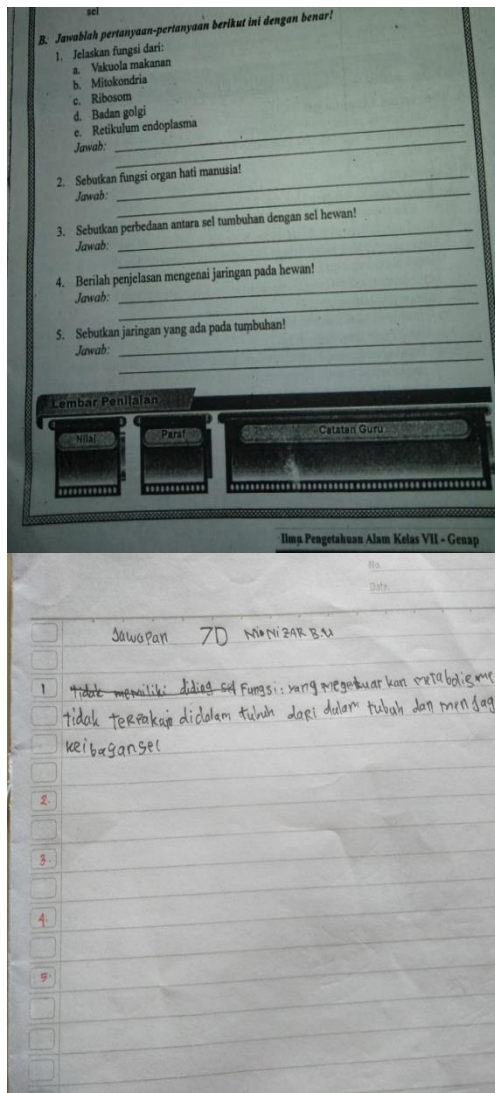 sel
B. Jawablah pertanyaan-pertanyaan berikut ini dengan benar!
1. Jelaskan fungsi dari:
a. Vakuola makanan
b. Mitokondria
c. Ribosom
d. Badan golgi
e. Retikulum endoplasma
Jawab:
2. Sebutkan fungsi organ hati manusia!
Jawab:
3. Sebutkan perbedaan antara sel tumbuhan dengan sel hewan!
Jawab:
4. Berilah penjelasan mengenai jaringan pada hewan!
Jawab:
5. Sebutkan jaringan yang ada pada tumbuhan!
Jawab:
Lembar Penilaian
Nilai Paraf Catatan Guru
Ilmu Pengetahuan Alam Kelas VII - Genap
No.
Date.
Jawapan 7D
1 tidak memiliki diding sel Fungsi: yang megeluar kan metabolisme
tidak terpakai didalam tubuh dari dalam tubuh dan menjag
2.
3.
4.
5.